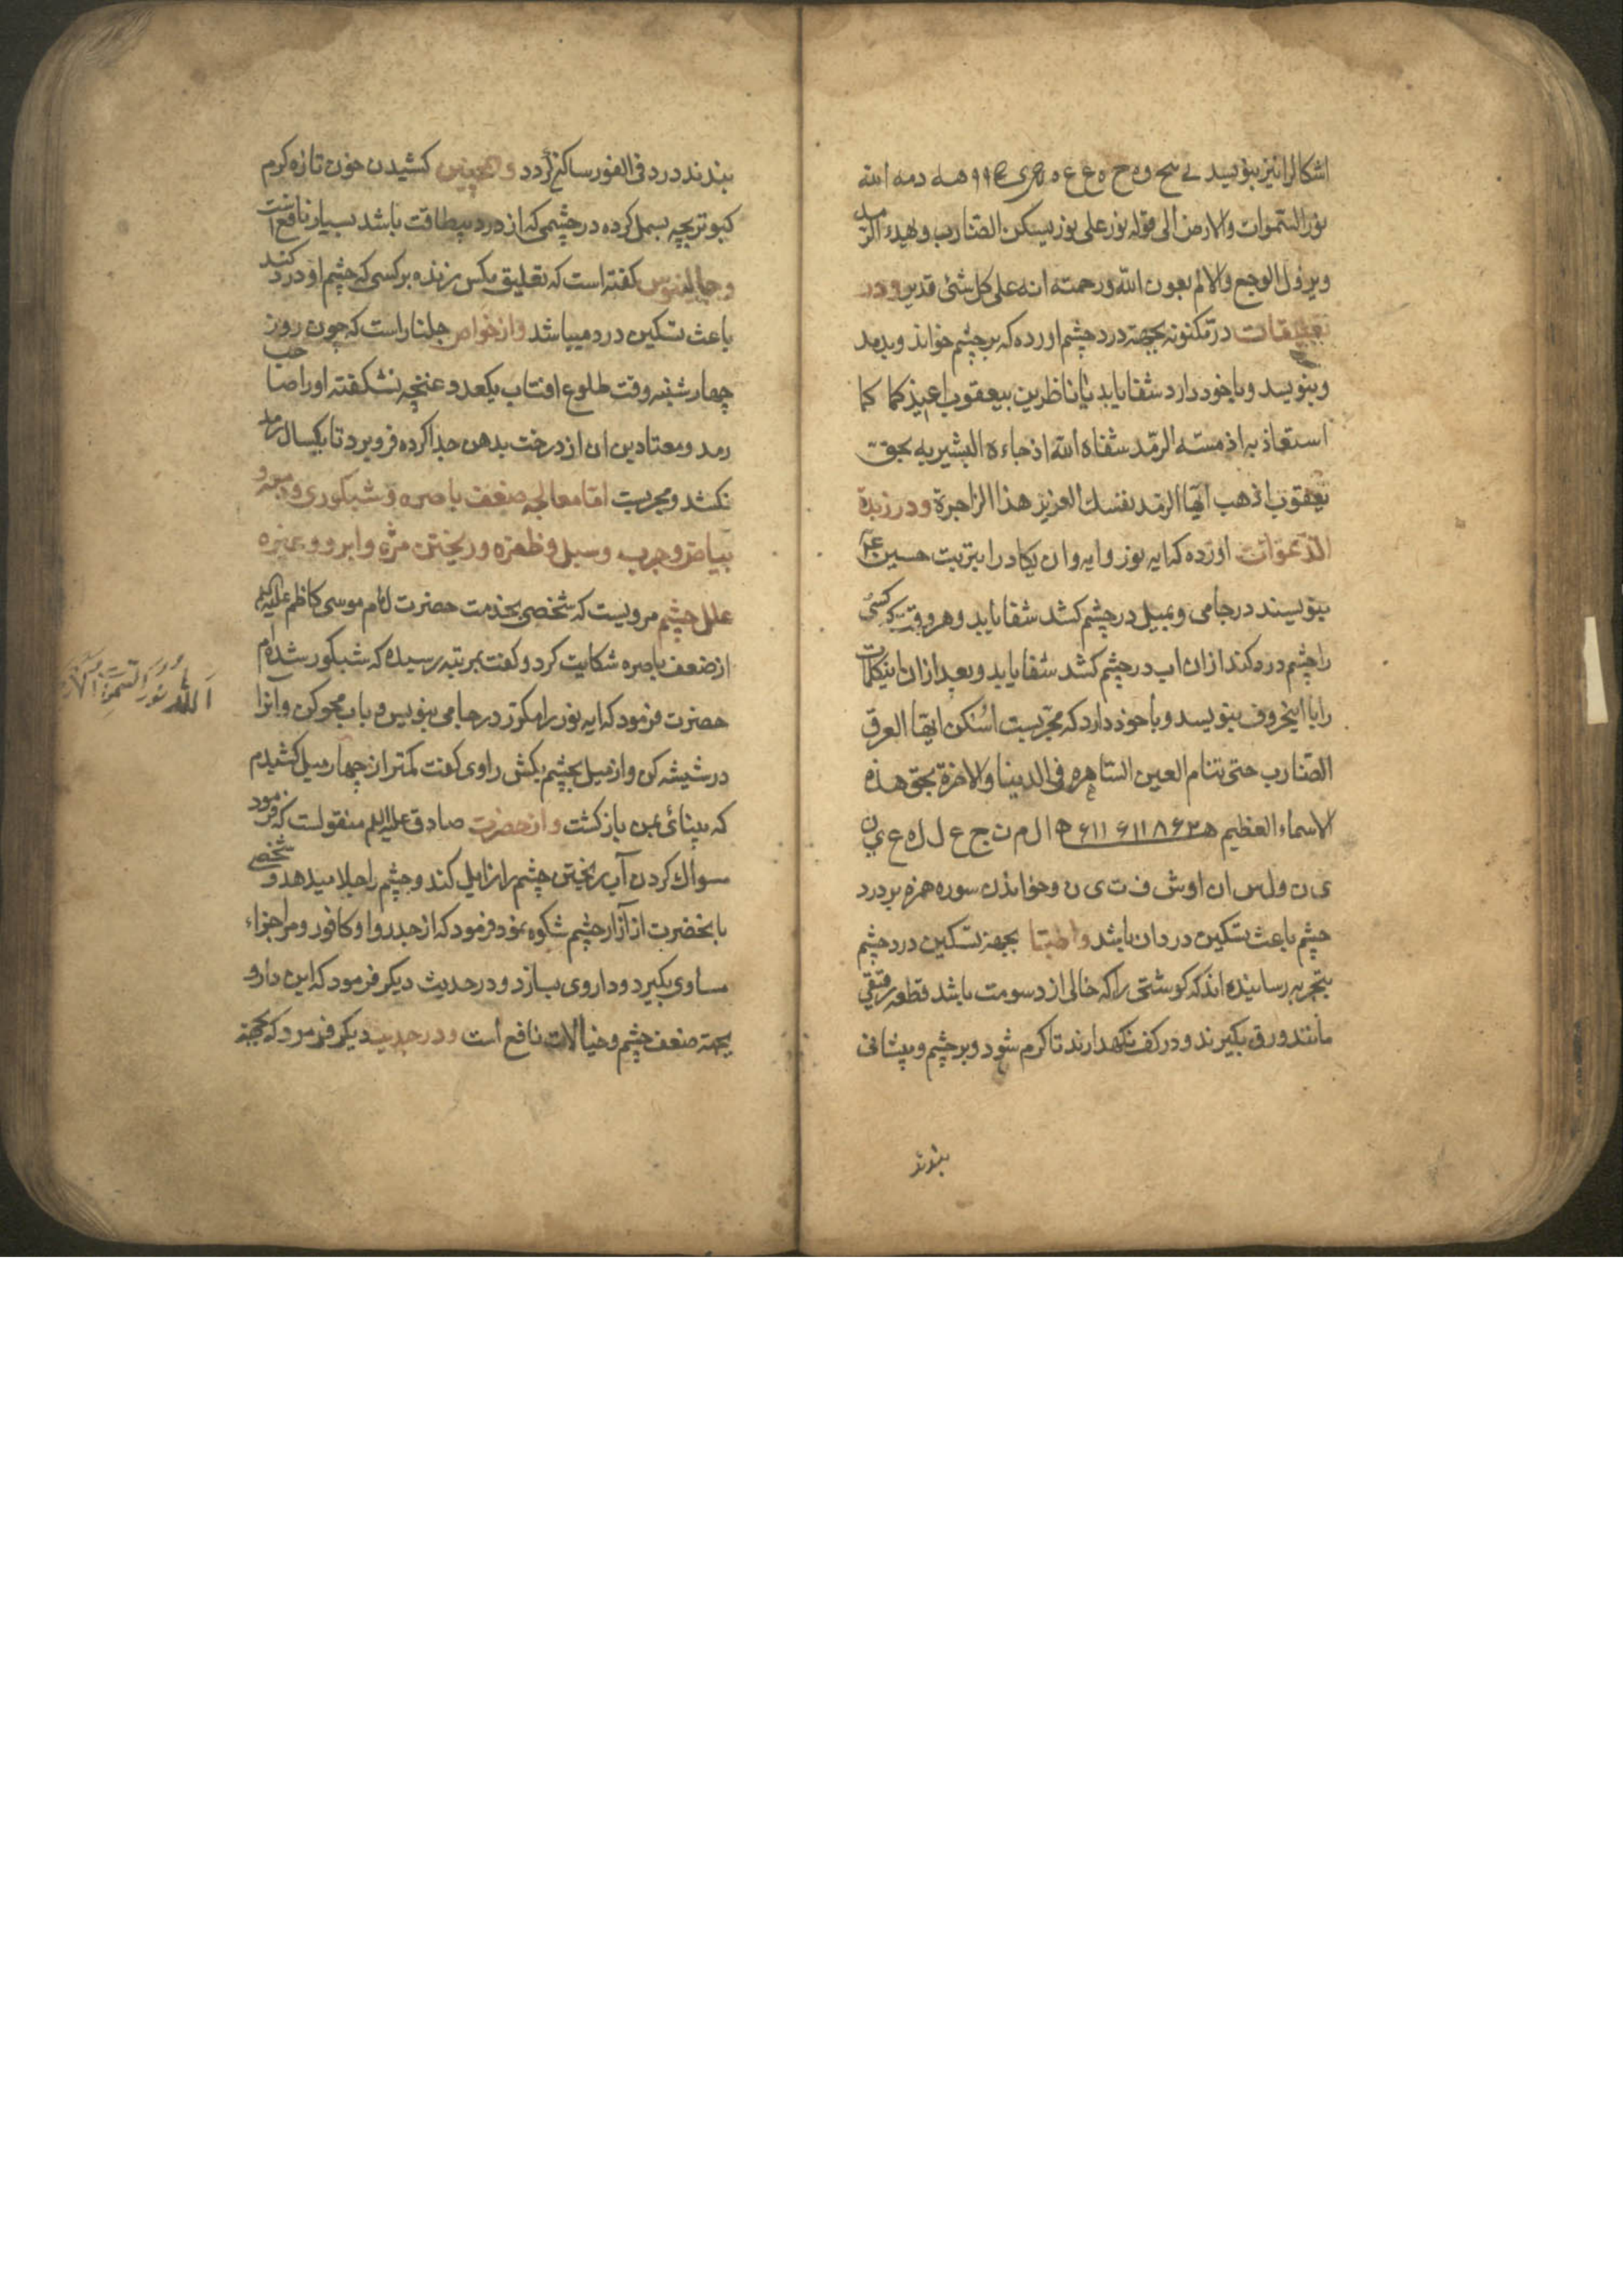 اشکالرا نیز بنویسد لے سح و ه ح ه ع ع ه ۹۹ هـه دمه الله
نور السّموات والارض الی قوله نور علی نور یسکن الضارب و یهدء الرمد
ویزول الوجع والالم بعون الله ورحمته انه علی کل شئ قدیر ودر
تعلیقات درّ مکنونه بجهة درد چشم اورده که بر چشم خواند و بدمد
وبنویسد وباخود دارد شفا یابد یا ناظرین بیعقوب اعیذکما کما
استعاذ به اذ مسّه الرّمد شفاه الله اذ جاءه البشیر به بحق
یعقوب اذهب ایّها الرّمد نفسك العزیز هذا الزاجرة ودر زبدة
الدّعوات اورده که ایه نور وایه وان یکاد را بتربت حسین ع
بنویسند در جامی وبمیل در چشم کشد شفا یابد وهر وقت که کسی
را چشم درد کند ازان اب در چشم کشد شفا یابد وبعد ازان اینکلمات
را با اینحروف بنویسد وباخود دارد که مجرّبست اسکن ایّها العرق
الضّارب حتی تنام العین السّاهره فی الدنیا والاخرة بحق هذه
الاسماء العظیم ا ل م ن ج ع ل ل ه ع ي ن
ی ن و ل س ا ن ا و ش ف ت ی ن وخواندن سوره همزه بر درد
چشم باعث تسکین دردان باشد واطبّا بجهة تسکین درد چشم
بتجربه رسانیده اند که کوشتی را که خالی از دسومت باشد قطعه رقیقی
مانند ورق بکیرند ودر کف نکهدارند تا کرم شود وبر چشم وپیشانی
بندند
بندند درد فی الفور ساکن کردد وهمچنین کشیدن خون تازه کرم
کبوتر بچه بسمل کرده در چشمی که از درد بیطاقت باشد بسیار نافع است
وجالینوس کفته است که تعلیق مکس زنده بر کسی که چشم او درد کند
باعث تسکین درد میباشد واز خواص جلنار است که چون روز
چهارشنبه وقت طلوع افتاب یکعدد غنچه نشکفته اورا صاحب
رمد ومعتادین ان از درخت بدهن جدا کرده فرو برد تا یکسال رمد
نکشد ومجربست امّا معالجه ضعف باصره و شبکوری ودمعه و
بیاض وجرب وسبل وظفره وریختن مژه وابرو وغیره
علل چشم مرویست که شخصی بخدمت حضرت امام موسی کاظم علیه السلم
از ضعف باصره شکایت کرد وکفت بمرتبه رسیده که شبکور شده ام
حضرت فرمود که ایه نور را مکرّر در جامی بنویس وباب محو کن وانرا
در شیشه کن واز میل بچشم بکش راوی کفت کمتر از چهار میل کشیدم
که بینائی بمن باز کشت وازحضرت صادق علیه السلم منقولست که فرمود
مسواك کردن آب ریختن چشم را زایل کند وچشم را جلا میدهد و شخصی
بانحضرت از آزار چشم شکوه نمود فرمود که از جدروا وکافور ومر اجزاء
مساوی بکیرد وداروی بسازد ودر حدیث دیکر فرمود که این دارو
بجهة ضعف چشم وخیالات نافع است ودر حدیث دیکر فرمود که بجهة
اَللهُ نُورُ السَّمٰوَاتِ